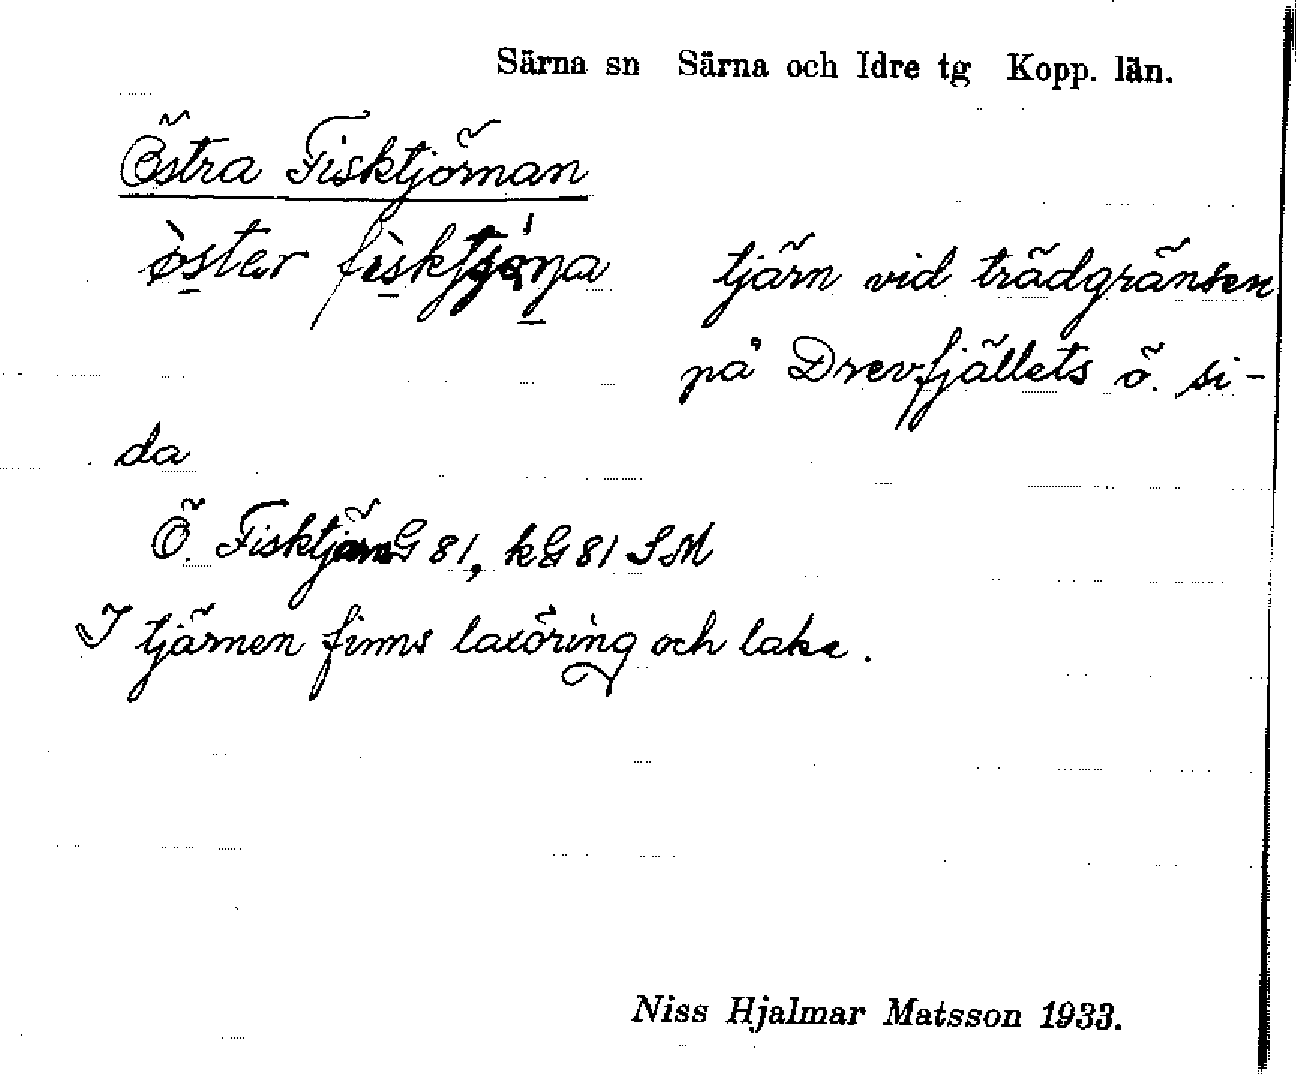 Särna sn Särna och Idre tg Kopp. län.
Östra Fisktjörnan
öster tjärn vid trädgränsen
på Drevfjällets ö. si-
da
Ö. Fisktjärn G 81, kG 81 SM
I tjärnen finns laxöring och lake.
Niss Hjalmar Matsson 1933.